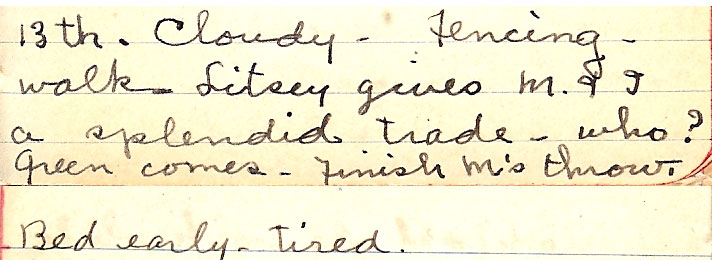 13th. Cloudy - Fencing -
walk - Litsey gives M. & I
a splendid trade - who?
Green comes - Finish M's throw.
Bed early - Tired.